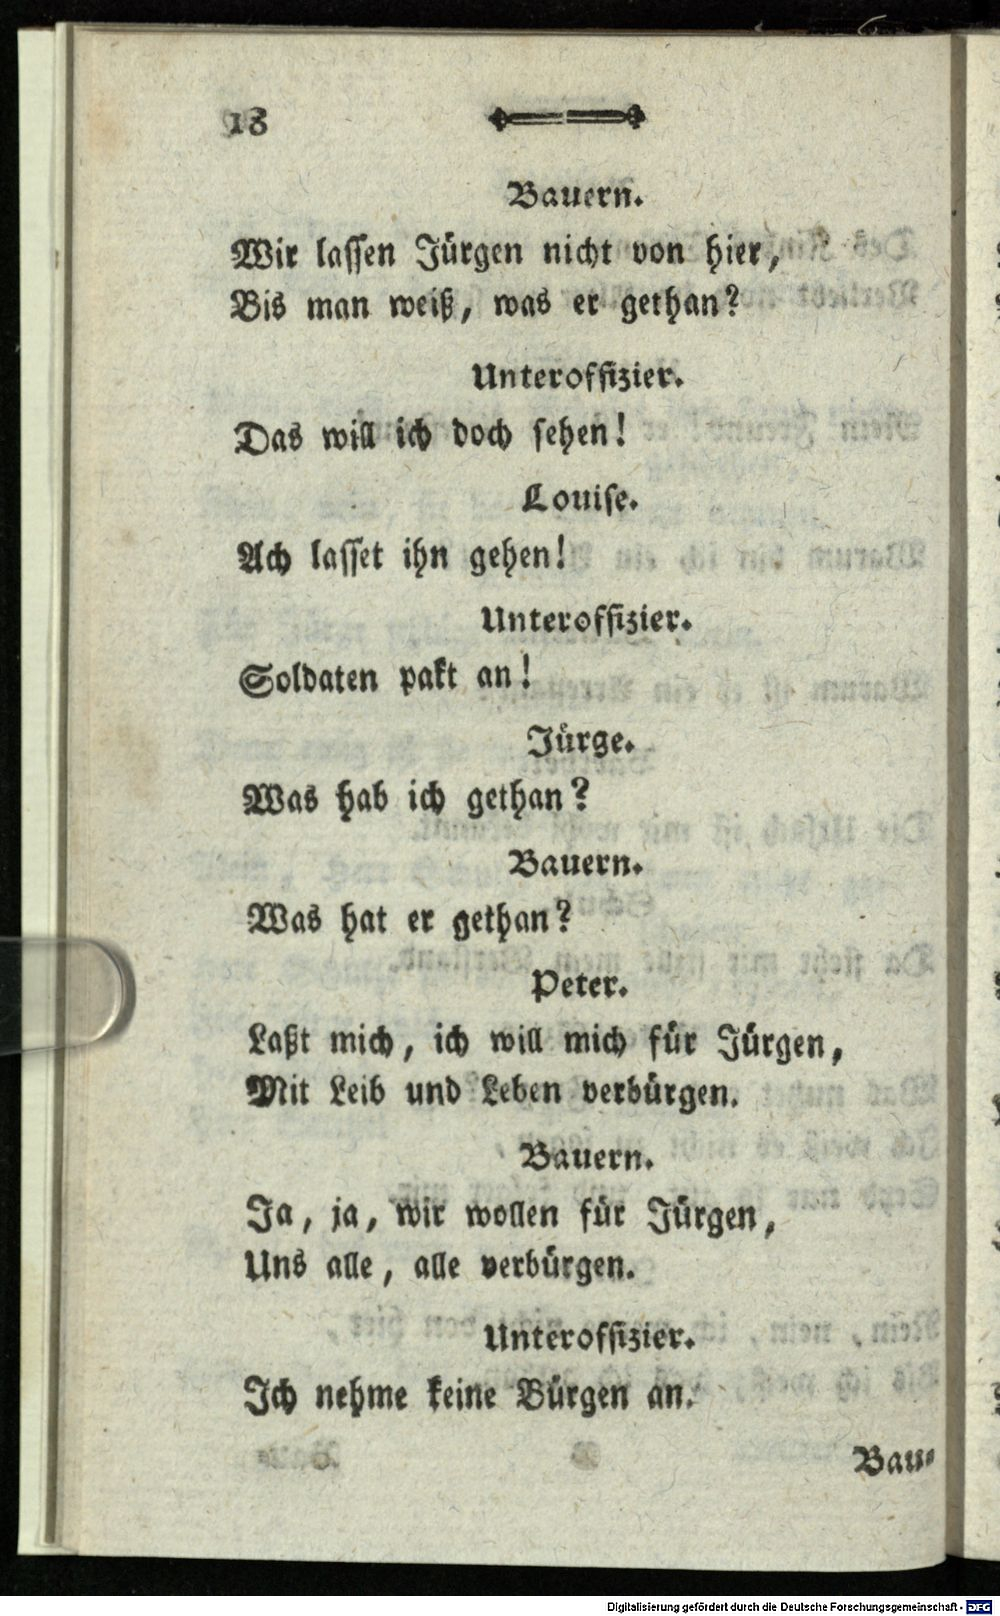 18
Bauern.
Wir lassen Jürgen nicht von hier,
Bis man weiß, was er gethan?
Unteroffizier.
Das will ich doch sehen!
Louise.
Ach lasset ihn gehen!
Unteroffizier.
Soldaten pakt an!
Jürge.
Was hab ich gethan?
Bauern.
Was hat er gethan?
Peter.
Laßt mich, ich will mich für Jürgen,
Mit Leib und Leben verbürgen.
Bauern.
Ja, ja, wir wollen für Jürgen,
Uns alle, alle verbürgen.
Unteroffizier.
Ich nehme keine Bürgen an.
Bau-
Digitalisierung gefördert durch die Deutsche Forschungsgemeinschaft - DFG